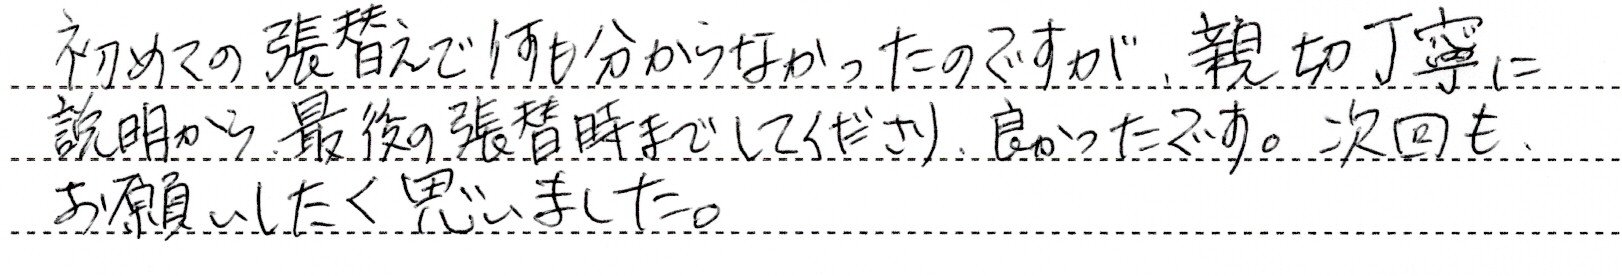 初めての張替えで何も分からなかったのですが、親切丁寧に
説明から、最後の張替時までしてくださり、良かったです。次回も、
お願いしたく思いました。